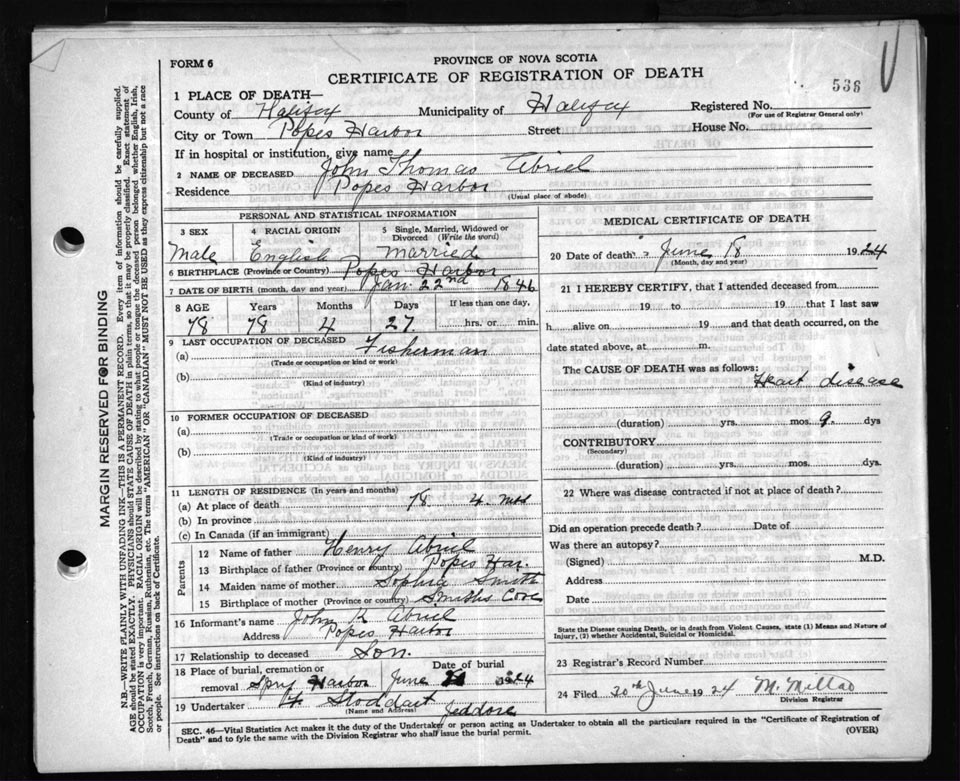 FORM 6
PROVINCE OF NOVA SCOTIA
CERTIFICATE OF REGISTRATION OF DEATH
536
1 PLACE OF DEATH—
County of Halifax Municipality of Halifax Registered No.
(For use of Registrar General only)
City or Town Popes Harbor Street House No.
If in hospital or institution, give name
2 NAME OF DECEASED John Thomas Abriel
Residence Popes Harbor
(Usual place of abode)
PERSONAL AND STATISTICAL INFORMATION
3 SEX 4 RACIAL ORIGIN 5 Single, Married, Widowed or Divorced (Write the word)
Male English Married
6 BIRTHPLACE (Province or Country) Popes Harbor
7 DATE OF BIRTH (month, day and year) Jan. 22nd 1846
8 AGE Years Months Days If less than one day,
78 78 4 27 hrs. or min.
9 LAST OCCUPATION OF DECEASED
(a) Fisherman
(Trade or occupation or kind or work)
(b)
(Kind of industry)
10 FORMER OCCUPATION OF DECEASED
(a)
(Trade or occupation or kind of work)
(b)
(Kind of industry)
11 LENGTH OF RESIDENCE (In years and months)
(a) At place of death 78 4 mos
(b) In province
(c) In Canada (if an immigrant)
Parents
12 Name of father Henry Abriel
13 Birthplace of father (Province or country) Popes Har.
14 Maiden name of mother Sophia Smith
15 Birthplace of mother (Province or country) Smiths Cove
16 Informant's name John K Abriel
Address Popes Harbor
17 Relationship to deceased Son.
18 Place of burial, cremation or removal Date of burial
Spry Harbor June 1924
19 Undertaker Stoddart Jeddore
(Name and Address)
MEDICAL CERTIFICATE OF DEATH
20 Date of death June 18 1924
(Month, day and year)
21 I HEREBY CERTIFY, that I attended deceased from
19 to 19 that I last saw
h alive on 19 and that death occurred, on the
date stated above, at m.
The CAUSE OF DEATH was as follows:
Heart disease
(duration) yrs. mos. 9 dys
CONTRIBUTORY
(Secondary)
(duration) yrs. mos. dys.
22 Where was disease contracted if not at place of death?
Did an operation precede death? Date of
Was there an autopsy?
(Signed) M.D.
Address
Date
State the Disease causing Death, or in death from Violent Causes, state (1) Means and Nature of
Injury, (2) whether Accidental, Suicidal or Homicidal.
23 Registrar's Record Number
24 Filed 20th June 1924 M. Millar
Division Registrar
SEC. 46—Vital Statistics Act makes it the duty of the Undertaker or person acting as Undertaker to obtain all the particulars required in the "Certificate of Registration of
Death" and to fyle the same with the Division Registrar who shall issue the burial permit. (OVER)
MARGIN RESERVED FOR BINDING
N.B.—WRITE PLAINLY WITH UNFADING INK—THIS IS A PERMANENT RECORD. Every item of information should be carefully supplied.
AGE should be stated EXACTLY. PHYSICIANS should STATE CAUSE OF DEATH in plain terms, so that it may be properly classified. Exact statement of
OCCUPATION is very important. RACIAL ORIGIN will be described by stating to what people or tongue the deceased person belonged whether English, Irish,
Scotch, French, German, Russian, Ruthenian, etc. The terms "AMERICAN" or "CANADIAN" MUST NOT BE USED as they express citizenship but not a race
or people. See instructions on back of Certificate.